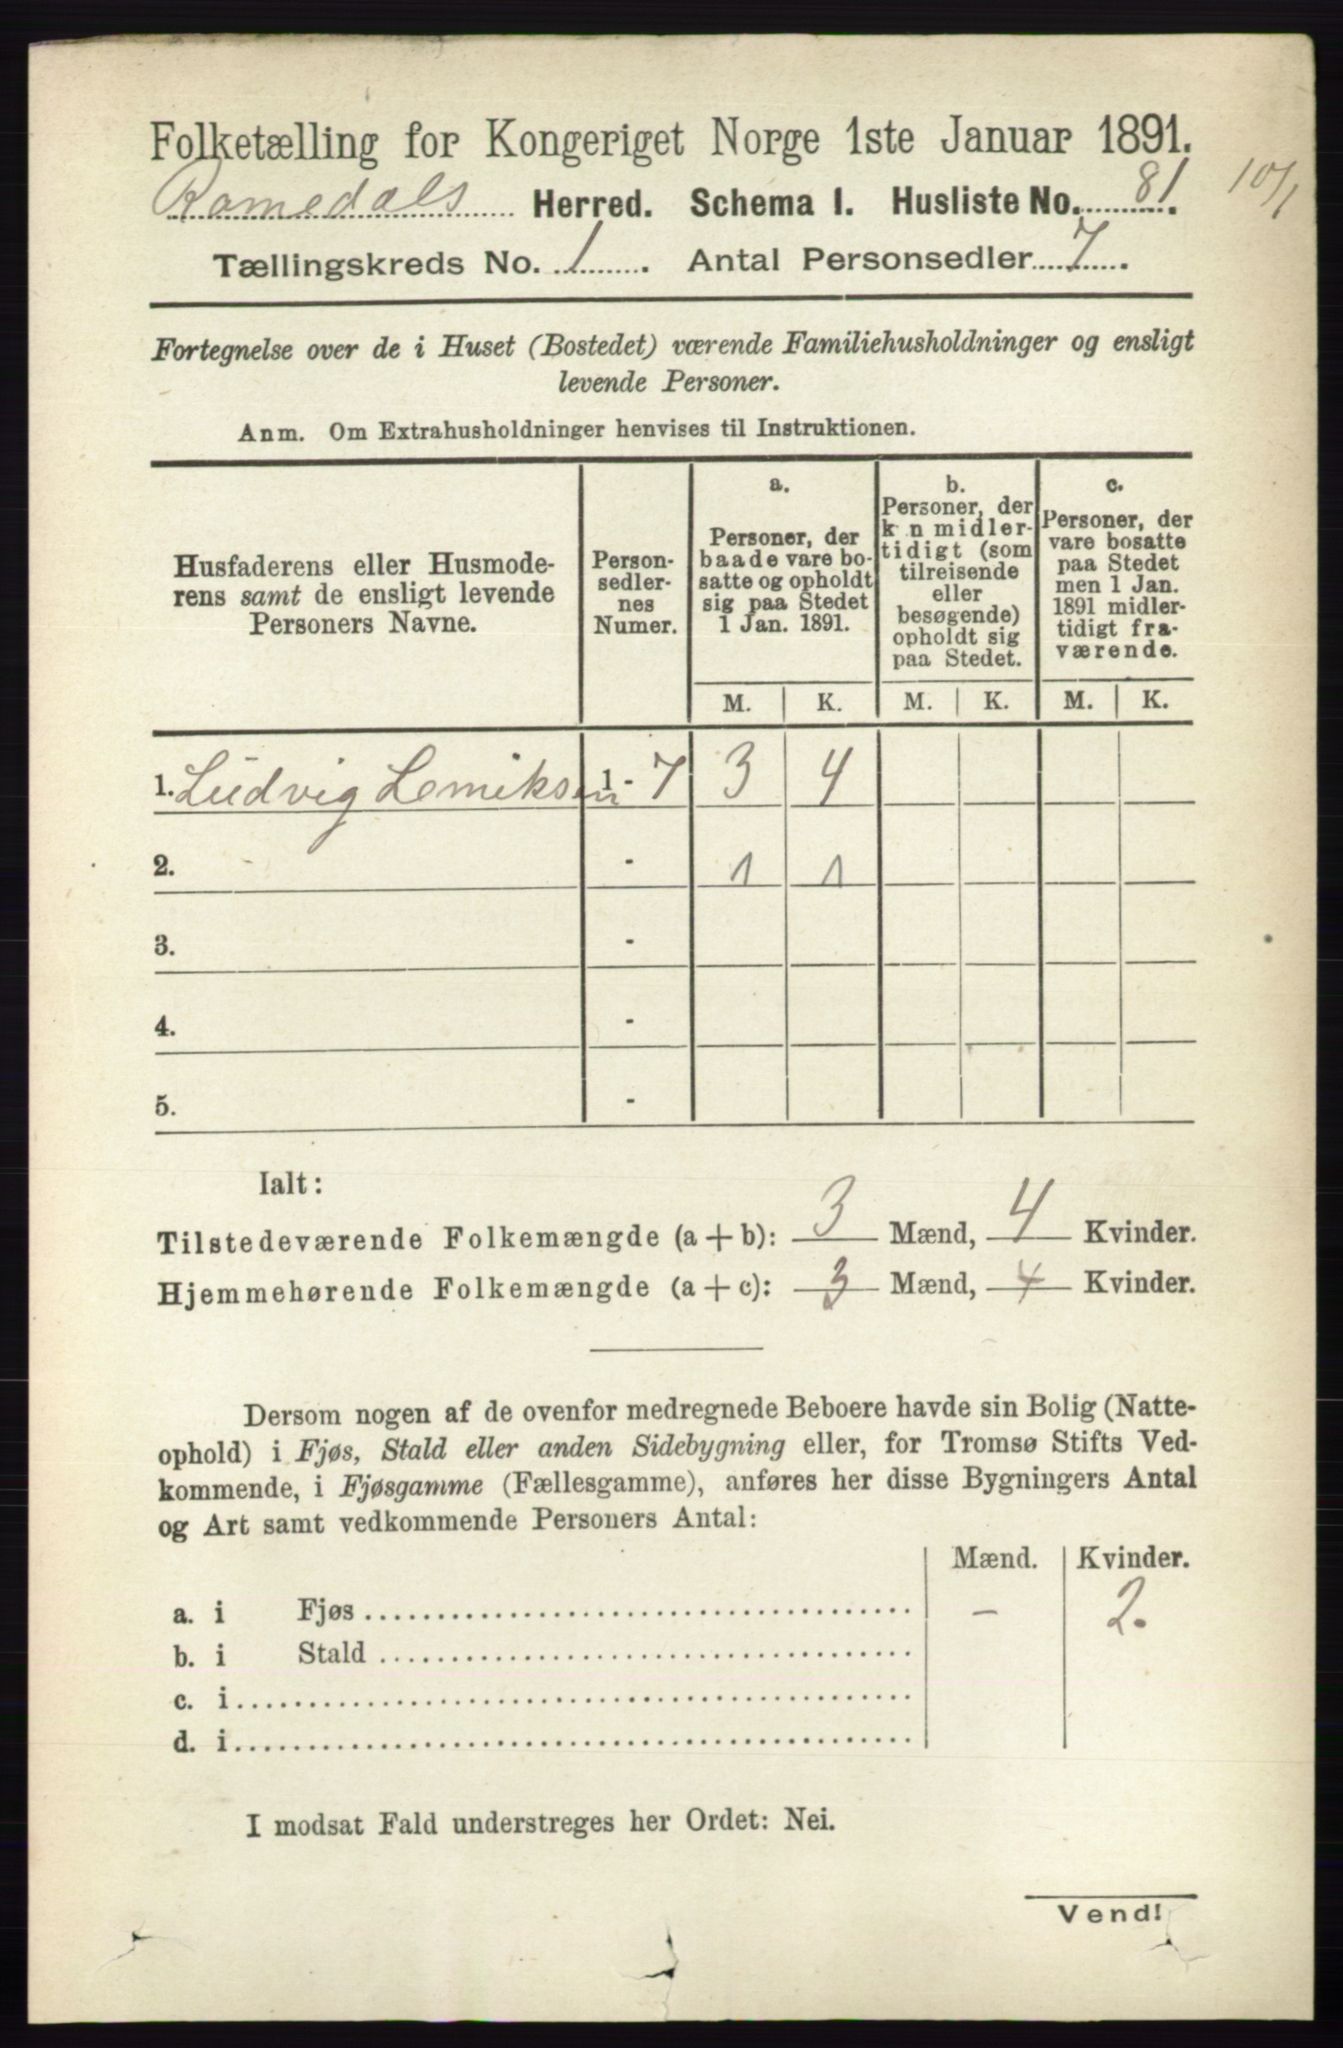 Folketælling for Kongeriget Norge 1ste Januar 1891.
Romedals Herred. Schema 1. Husliste No. 81.
10/1
Tællingskreds No. 1. Antal Personsedler 7.
Fortegnelse over de i Huset (Bostedet) værende Familiehusholdninger og ensligt
levende Personer.
Anm. Om Extrahusholdninger henvises til Instruktionen.
Husfaderens eller Husmode-
rens samt de ensligt levende
Personers Navne.
Person-
sedler-
nes
Numer.
a.
Personer, der
baade vare bo-
satte og opholdt
sig paa Stedet
1 Jan. 1891.
b.
Personer, der
k n midler-
tidigt (som
tilreisende
eller
besøgende)
opholdt sig
paa Stedet.
c.
Personer, der
vare bosatte
paa Stedet
men 1 Jan.
1891 midler-
tidigt fra-
værende.
M. K. M. K. M. K.
1. Ludvig Lemiksen 1 - 7 3 4
2. - 1 1
3. -
4. -
5. -
Ialt:
Tilstedeværende Folkemængde (a + b): 3 Mænd, 4 Kvinder.
Hjemmehørende Folkemængde (a + c): 3 Mænd, 4 Kvinder.
Dersom nogen af de ovenfor medregnede Beboere havde sin Bolig (Natte-
ophold) i Fjøs, Stald eller anden Sidebygning eller, for Tromsø Stifts Ved-
kommende, i Fjøsgamme (Fællesgamme), anføres her disse Bygningers Antal
og Art samt vedkommende Personers Antal:
Mænd. Kvinder.
a. i Fjøs - 2.
b. i Stald
c. i
d. i
I modsat Fald understreges her Ordet: Nei.
Vend!